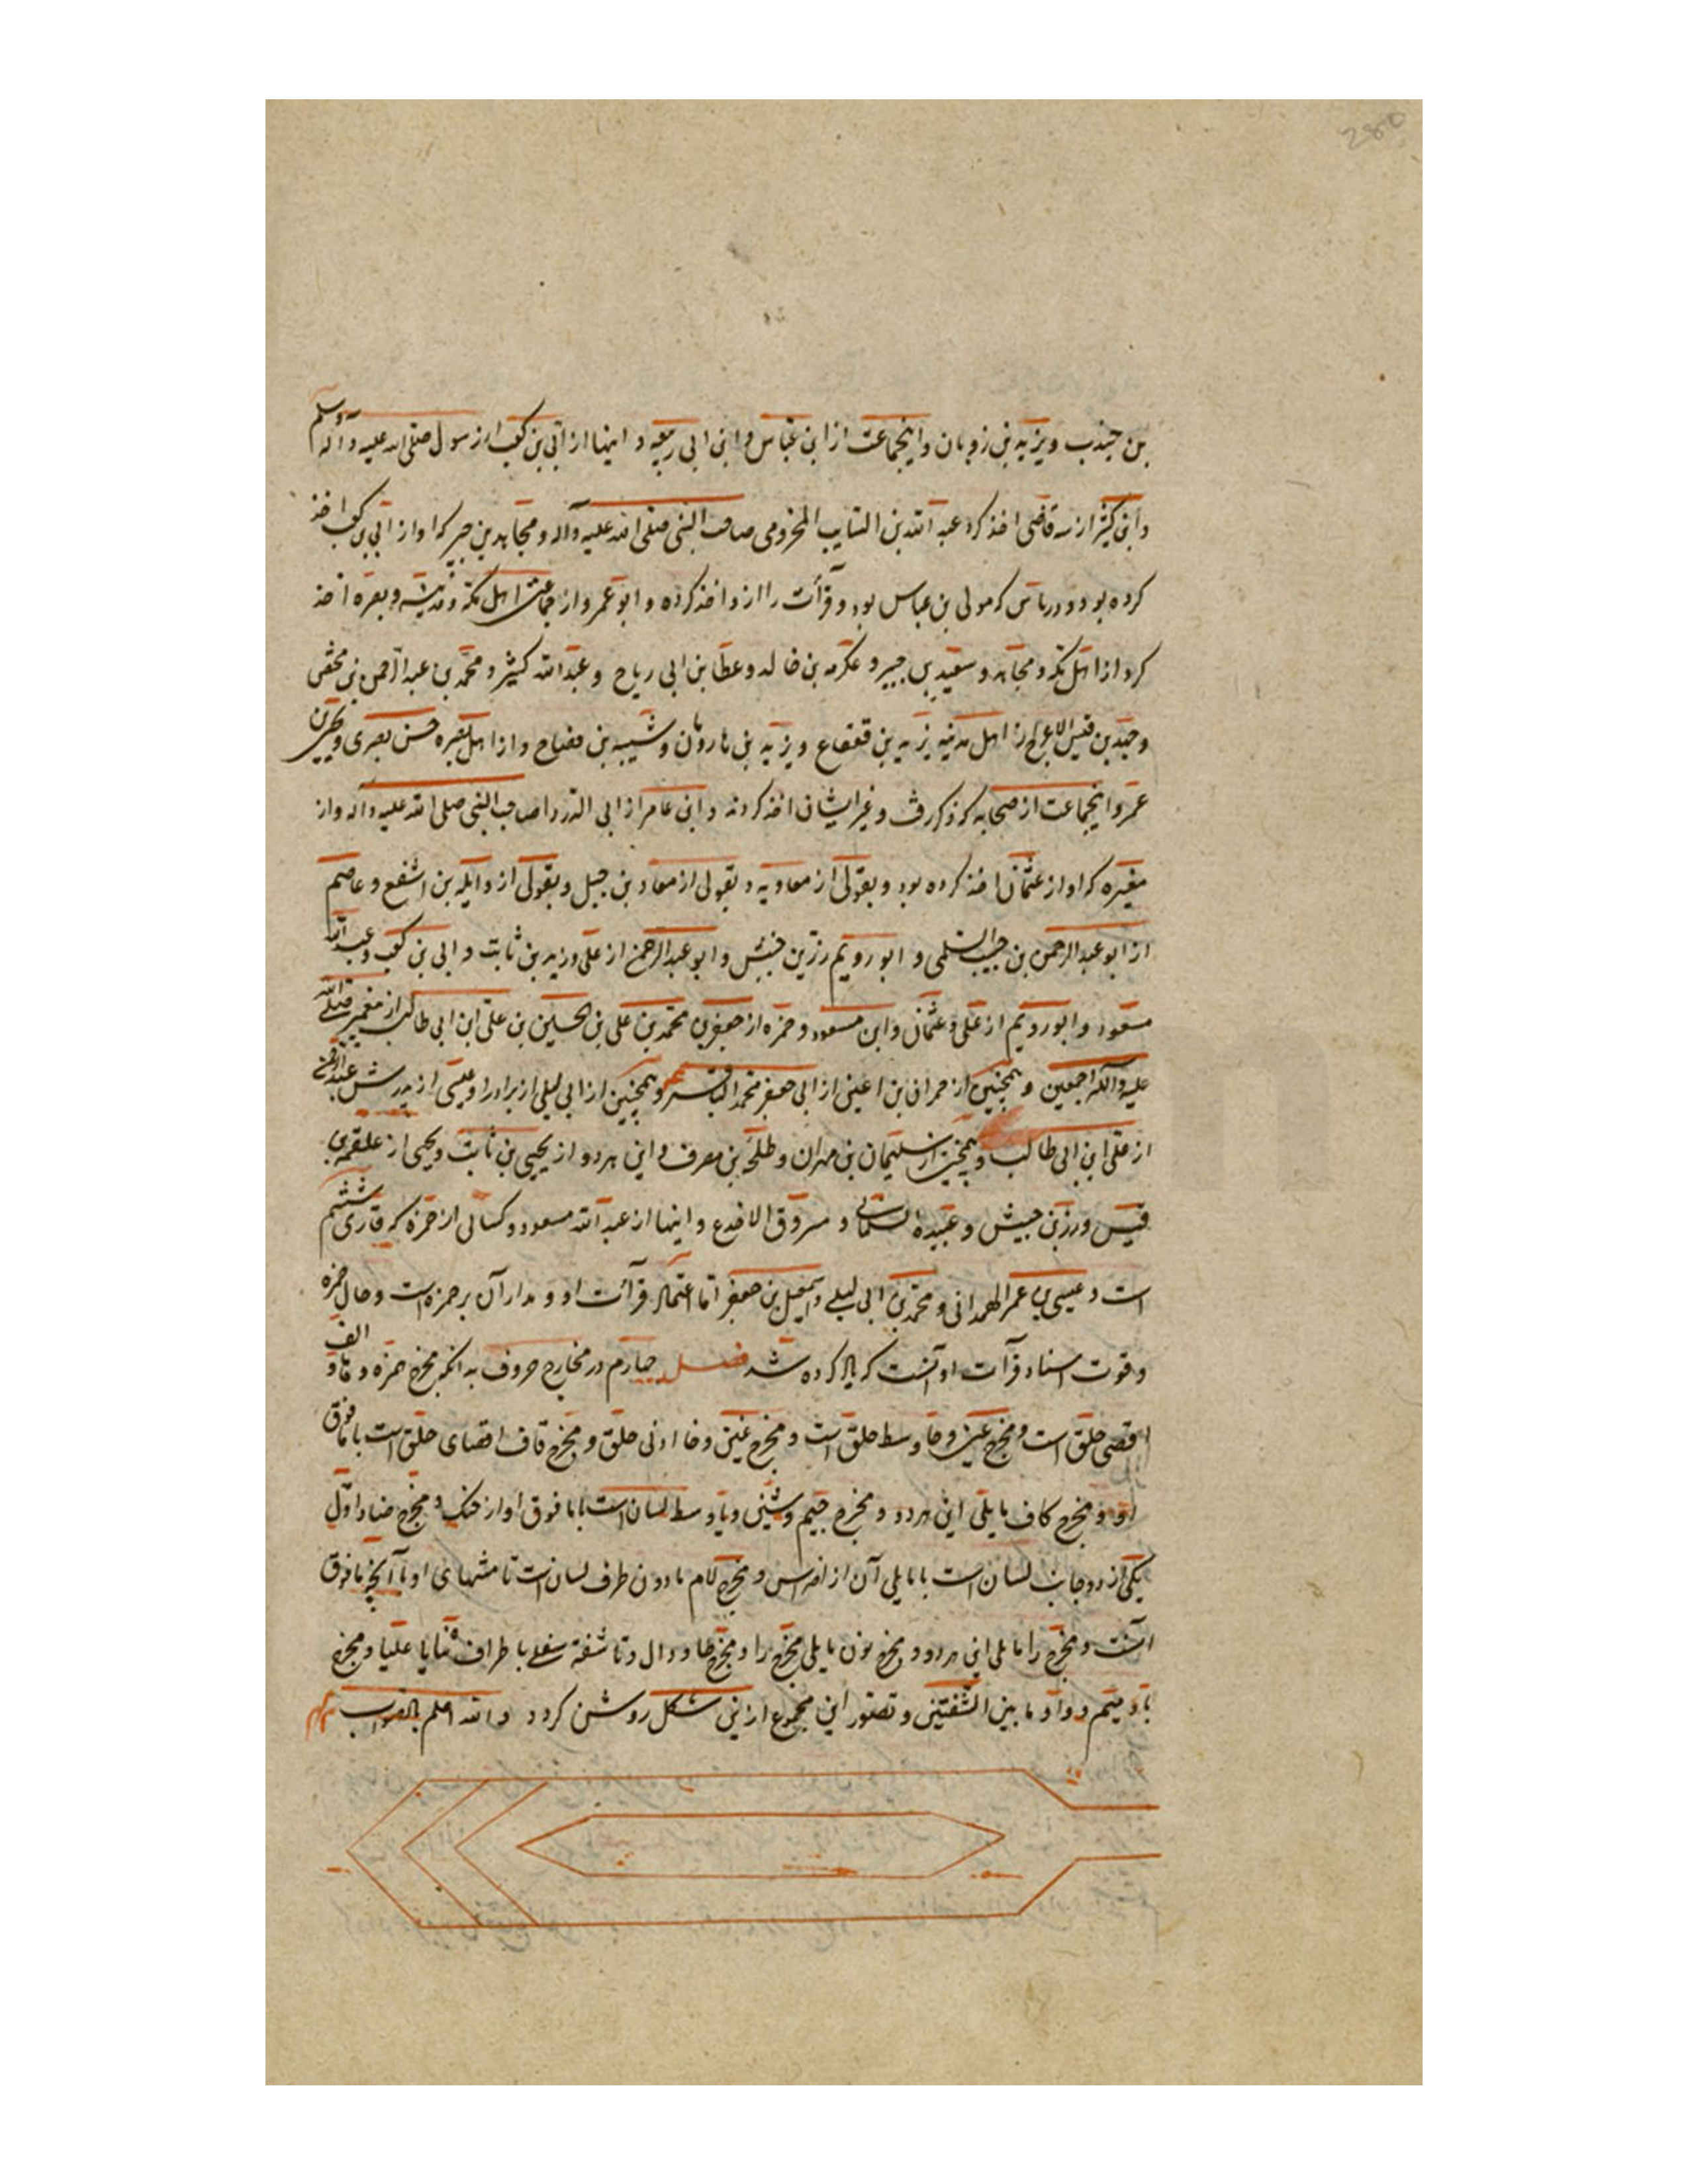 280
بن جندب ویزید بن رومان واینجماعت از ابن عباس وابن ابی ربیعه و اینها از ابی بن کعب از رسول صلی الله علیه وآله وسلم
وابن کثیر از سه قاضی اخذ کرد عبد الله بن السایب المخزومی صاحب النبی صلی الله علیه وآله ومجاهد بن جبیر که او از ابی بن کعب اخذ
کرده بود ودرباس که مولی بن عباس بود وقرأت را از و اخذ کرده و ابو عمرو از جماعت اهل مکه ومدینه وبصره اخذ
کرد از اهل مکه ومجاهد وسعید بن جبیر وعکرمه بن خالد وعطا بن ابی ریاح وعبد الله کثیر ومحمد بن عبد الرحمن بن محیص
وحمید بن قیس الاعرج از اهل مدینه یزید بن قعقاع ویزید بن هارون وشیبه بن مفتاح واز اهل بصره حسن بصری ویحیی بن
عمر واینجماعت از صحابه که ذکر رفت وغیر ایشان اخذ کردند وابن عامر از ابی الدردا صاحب النبی صلی الله علیه وآله واز
مغیره که او از عثمان اخذ کرده بود وبقولی از معاویه وبقولی از معاد بن جبل وبقولی از وایله بن اشفع وعاصم
از ابو عبد الرحمن بن حبیب السلمی و ابو رویم رزین حبیش وابو عبد الرحمن از علی وزید بن ثابت وابی بن کعب وعبد الله
مسعود وابو رویم از علی وعثمان وابن مسعود وحمزه از جعفر بن محمد بن علی بن الحسین بن علی ابن ابی طالب از پیغمبر صلی الله
علیه وآله اجمعین وهمچنین از حمران بن اعین از ابی جعفر محمد الباقر وهمچنین از ابی لیلی از برادر او عیسی از پدرش عبد الرحمن
از علی ابن ابی طالب وهمچنین از سلیمان بن مهران وطلحه بن مصرف واین هر دو از یحیی بن ثابت ویحیی از علقمه بن
قیس ورز بن حبیش وعبیده السلمانی و مسروق الاجدع واینها از عبد الله مسعود وکسائی از حمزه که قاری ششم
است وعیسی بن عمر الهمدانی ومحمد بن ابی لیلی واسمعیل بن جعفر اما اعتماد قرأئت او و مدار آن بر حمزه است وحال حمزه
وقوت اسناد قرآت او آنست که یاد کرده شد فصل چهارم در مخارج حروف بدانکه مخرج همزه وها والف
اقصی حلق است ومخرج عین وحا وسط حلق است ومخرج غین وخا ادنی حلق ومخرج قاف اقصای حلق است با مافوق
او ومخرج کاف مایلی این هر دو ومخرج جیم وشین ویا وسط لسان است با مافوق او از حنک ومخرج ضاد اول
یکی از دو جانب لسان است با مایلی آن از اضراس ومخرج لام مادون طرف لسان است تا منتهای او با آنچه مافوق
آنست ومخرج را مایلی این هر دو ومخرج نون مایلی مخرج را ومخرج طا ودال وتا شفه سفلی با طراف ثنایا علیا ومخرج
با ومیم وواو ما بین الشفتین وتصور این مجموع ازین شکل روشن کردد والله اعلم بالصواب